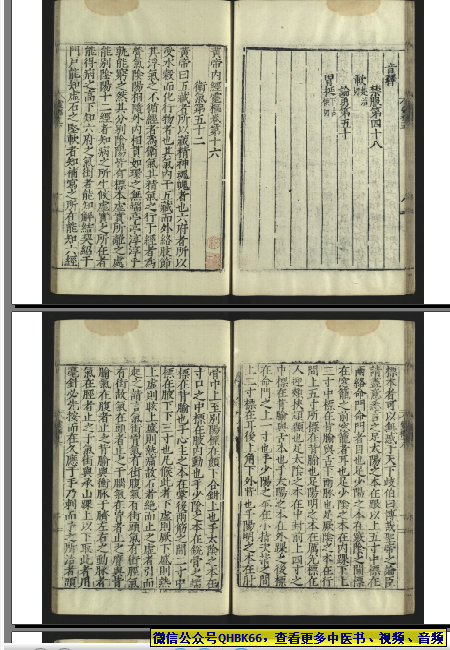 音釋
禁服第四十八
論勇第五十
黄帝内經靈樞卷第十六
衛氣第五十二
黄帝曰五藏者所以藏精神魂魄者也六府者所以
受水穀而化行物者也其氣内于五藏而外絡肢節
其浮氣之不循經者為衛氣其精氣之行于經者為
營氣陰陽相隨外内相貫如環之無端亭亭淳淳乎
孰能窮之然其分别陰陽皆有標本虛實所離之處
能别陰陽十二經者知病之所生候虛實之所在者
能得病之高下知六府之氣街者能知解結契紹于
門戶能知虛石之堅軟者知補瀉之所在能知六經
標本者可以無惑于天下岐伯曰博哉聖帝之論臣
請盡意悉言之足太陽之本在跟以上五寸中標在
兩絡命門命門者目也足少陽之本在竅陰之間標
在窓籠之前窓籠者耳也足少陰之本在内踝下上
三寸中標在背腧與舌下兩脉也足厥陰之本在行
間上五寸所標在背腧也足陽明之本在厲兊標在
人迎頰挾頏顙也足太陰之本在中封前上四寸之
中標在背腧與舌本也手太陽之本在外踝之後標
在命門之上一寸也手少陽之本在小指次指之間
上二寸標在耳後上角下外眥也手陽明之本在肘
骨中上至别陽標在顔下合鉗上也手太陰之本在
寸口之中標在腋内動也手少陰之本在銳骨之端
標在背腧也手心主之本在掌後兩筋之間二寸中
標在腋下下三寸也凡候此者下虛則厥下盛則熱
上虛則眩上盛則熱痛故石者絶而止之虛者引而
起之請言氣街胷氣有街腹氣有街頭氣有街脛氣
有街故氣在頭者止之于腦氣在胷者止之膺與背
腧氣在腹者止之背腧與衝脉于臍左右之動脉者
氣在脛者止之于氣街與承山踝上以下取此者用
毫針必先按而在久應于手乃刺而予之所治者頭
微信公众号QHBK66，查看更多中医书、视频、音频